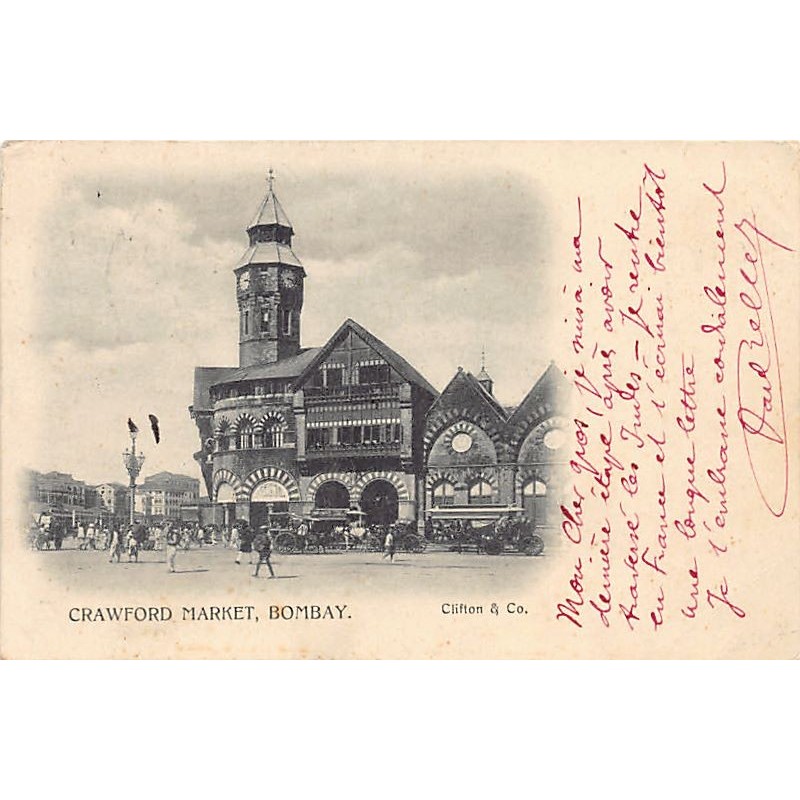 CRAWFORD MARKET, BOMBAY.
Clifton & Co.
Mon Cher gros, je suis à ma
dernière étape après avoir
traversé les Indes – Je rentre
en France et t'écrirai bientôt
une longue lettre
Je t'embrasse cordialement
Paul